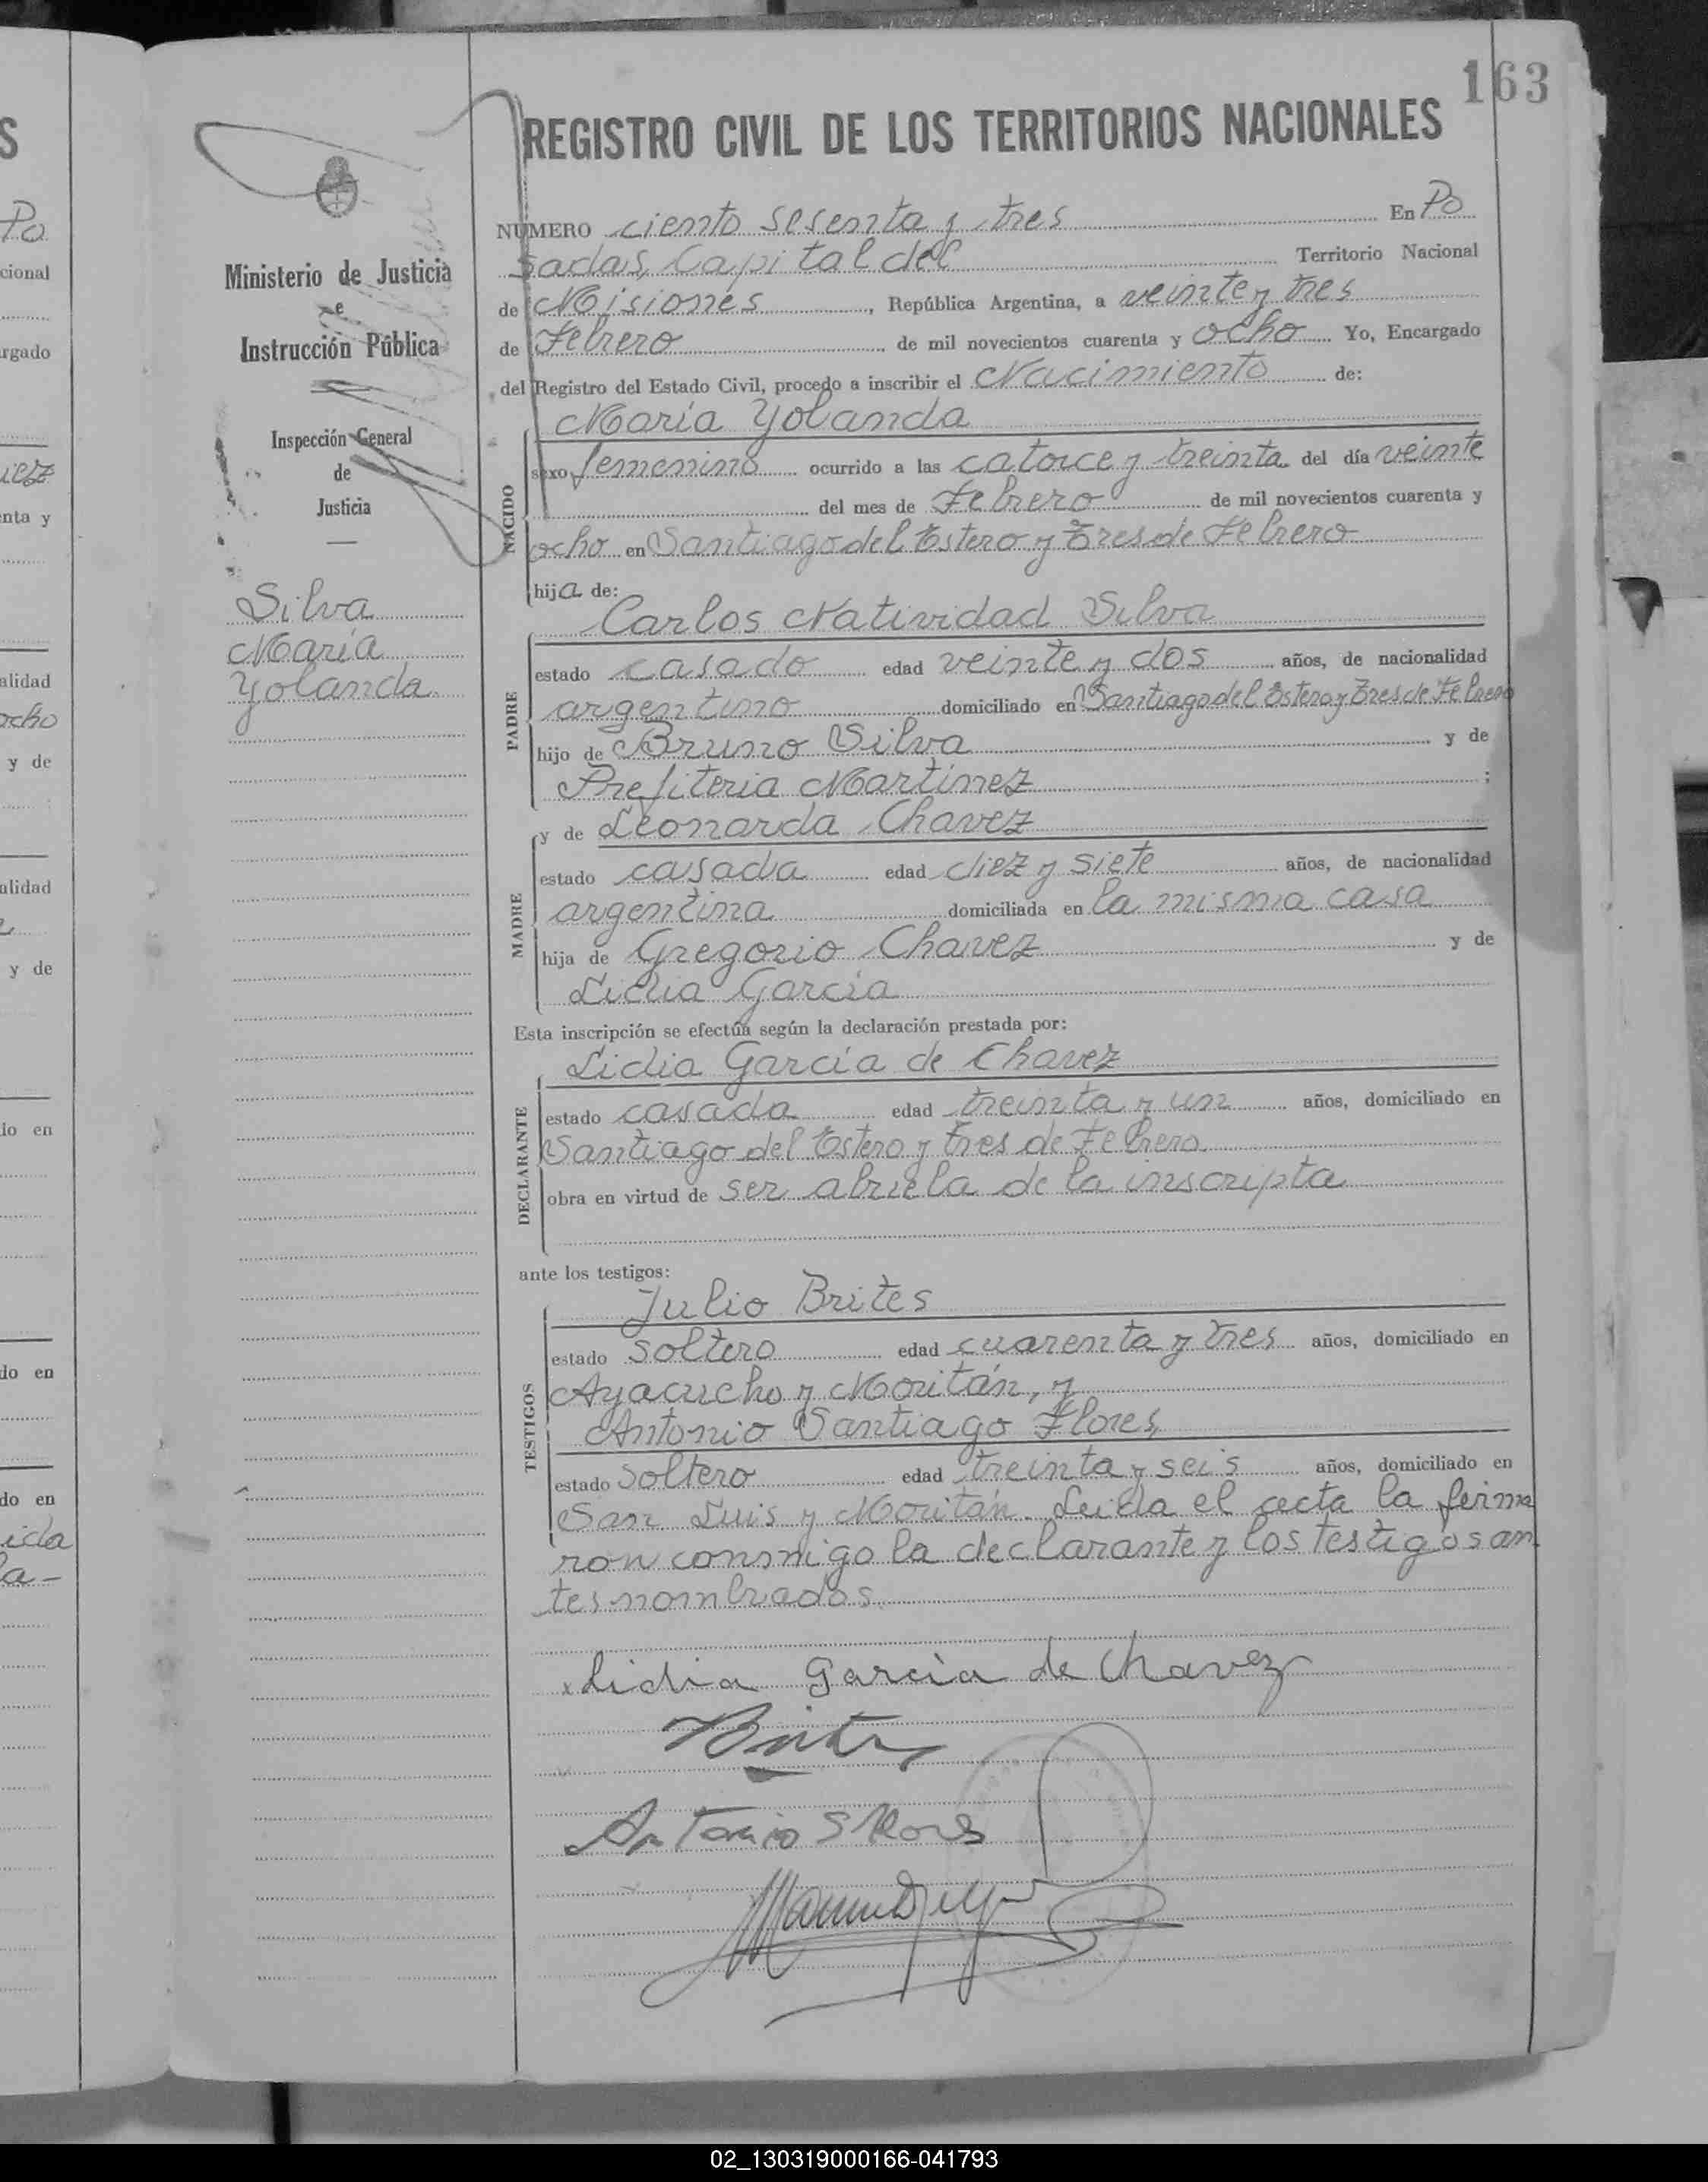 163
REGISTRO CIVIL DE LOS TERRITORIOS NACIONALES
NUMERO ciento sesenta y tres En Po
sadas, Capital del Territorio Nacional
de Misiones, República Argentina, a veinte y tres
de Febrero de mil novecientos cuarenta y ocho Yo, Encargado
del Registro del Estado Civil, procedo a inscribir el Nacimiento de:
María Yolanda
NACIDO
sexo femenino ocurrido a las catorce y treinta del día veinte
del mes de Febrero de mil novecientos cuarenta y
ocho en Santiago del Estero y Tres de Febrero
hija de:
Carlos Natividad Silva
PADRE
estado casado edad veinte y dos años, de nacionalidad
argentino domiciliado en Santiago del Estero y Tres de Febrero
hijo de Bruno Silva y de
Prefiteria Martinez ;
y de Leonarda Chavez
MADRE
estado casada edad diez y siete años, de nacionalidad
argentina domiciliada en la misma casa
hija de Gregorio Chavez y de
Lidia García
Esta inscripción se efectúa según la declaración prestada por:
Lidia García de Chavez
DECLARANTE
estado casada edad treinta y un años, domiciliado en
Santiago del Estero y tres de Febrero
obra en virtud de ser abuela de la inscripta
ante los testigos:
Julio Brites
TESTIGOS
estado soltero edad cuarenta y tres años, domiciliado en
Ayacucho y Moritán, y
Antonio Santiago Flores,
estado soltero edad treinta y seis años, domiciliado en
San Luis y Moritán. Leida el acta la firma
ron conmigo la declarante y los testigos an
tes nombrados.
Lidia García de Chavez
Brites
Antonio S Flores
Ministerio de Justicia
e
Instrucción Pública
Inspección General
de
Justicia
Silva
María
Yolanda
S
Po
cional
rgado
iez
nta y
alidad
ocho
y de
alidad
y de
do en
do en
do en
ida
a-
02_130319000166-041793